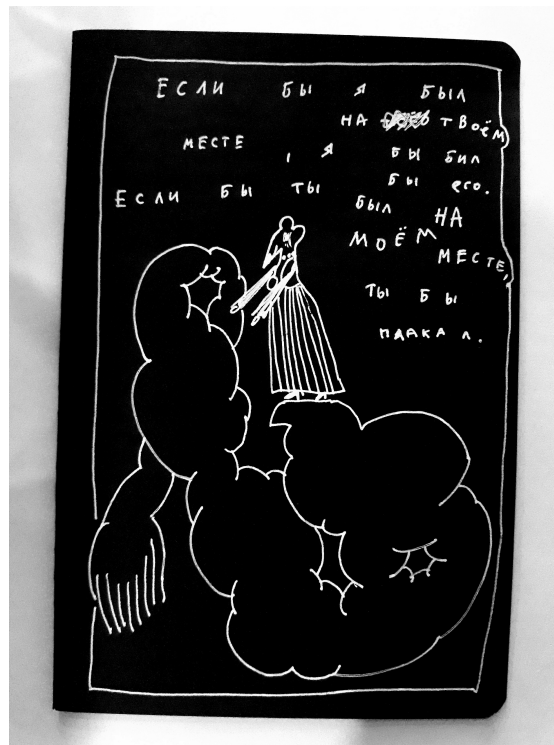 ЕСЛИ БЫ Я БЫЛ
НА ТВОЁМ
МЕСТЕ, Я БЫ БИЛ
БЫ его.
ЕСЛИ БЫ ТЫ
БЫЛ НА
МОЁМ
МЕСТЕ,
ТЫ БЫ
ПЛАКАЛ.